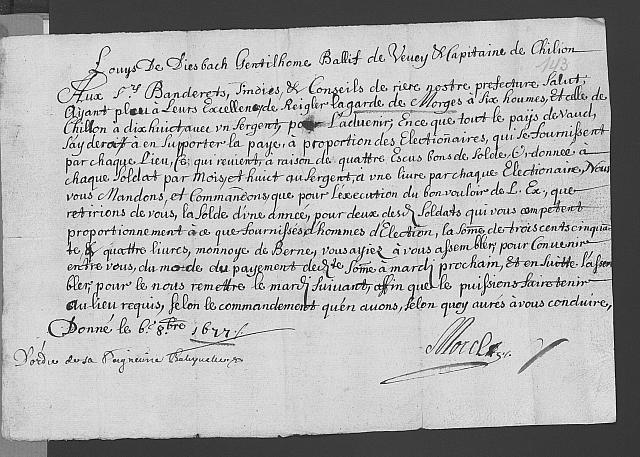 Louÿs De Diesbach Gentilhome Ballif de Vevey & Capitaine de Chilion
143
Aux Srs Banderets, Sindics, & Conseils de riere nostre prefecture Salut,
Aÿant pleu a Leurs Excellences de Reigler la garde de Morges à Six houmes, et celle de
Chillon à dixhuict, avec vn Sergent, pour L'advenir, En ce que tout le paÿs de vaud,
Saÿderast à en Supporter la paÿe, a proportion des Electionaires, qui se fournissent
par chaque Lieu, Ce qui revient, a raison de quattre Escus bons de Solde, Ordonnée à
chaque Soldat par Mois, et huict au Sergent, a vne liure par chaque Electionaire, Nous
vous Mandons, et Commandons, que pour L'éxecution du bon vouloir de L. Ex, que
retirions de vous, la Solde d'vne année, pour deux desd. Soldats qui vous competent
proportionnement à ce que fournissés d'hommes d'Election, la Some de trois cents cinquan
te, & quattre livres, monnoÿe de Berne, vous aÿiez à vous assembler, pour Convenir
entre vous, du mode du paÿement de ladite Some à mardi prochain, et en suitte L'assem
bler, pour le nous remettre le mardi Suivant, affin que le puissions faire tenir
au lieu requis, selon le commandement qu'en avons, selon quoÿ aurés à vous conduire,
Donné le 6e 8bre 1677
D'ordre de sa Seigneurie Baliyvale